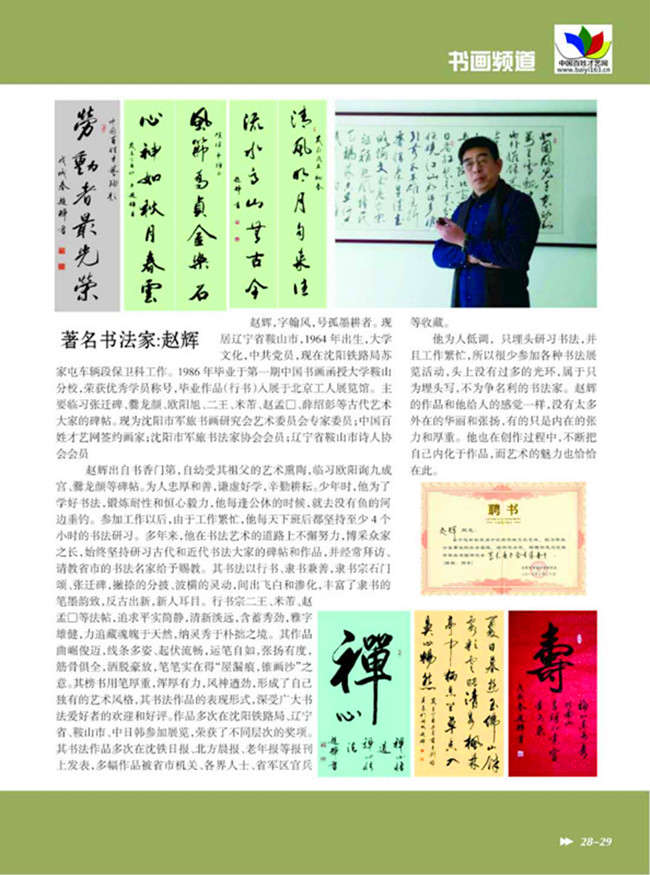 书画频道
中国百姓才艺网
www.baiyi163.cn
勞動者最光榮
戊戌春趙輝書
心神如秋月春雲
風節爲貞金樂石
流水高山無古今
清風明月自來往
著名书法家:赵辉
赵辉,字翰风,号孤墨耕者。现
居辽宁省鞍山市,1964 年出生,大学
文化,中共党员,现在沈阳铁路局苏
家屯车辆段保卫科工作。1986 年毕业于第一期中国书画函授大学鞍山
分校,荣获优秀学员称号,毕业作品(行书)入展于北京工人展览馆。主
要临习张迁碑、爨龙颜、欧阳旭、二王、米芾、赵孟□、薛绍彭等古代艺术
大家的碑帖。现为沈阳市军旅书画研究会艺术委员会专家委员;中国百
姓才艺网签约画家;沈阳市军旅书法家协会会员;辽宁省鞍山市诗人协
会会员
赵辉出自书香门第,自幼受其祖父的艺术熏陶,临习欧阳询九成
宫、爨龙颜等碑帖。为人忠厚和善,谦虚好学,辛勤耕耘。少年时,他为了
学好书法,锻炼耐性和恒心毅力,他每逢公休的时候,就去没有鱼的河
边垂钓。参加工作以后,由于工作繁忙,他每天下班后都坚持至少 4 个
小时的书法研习。多年来,他在书法艺术的道路上不懈努力,博采众家
之长,始终坚持研习古代和近代书法大家的碑帖和作品,并经常拜访、
请教省市的书法名家给予赐教。其书法以行书、隶书兼善,隶书宗石门
颂、张迁碑,撇捺的分披、波横的灵动,间出飞白和渗化,丰富了隶书的
笔墨韵致,反古出新,新人耳目。行书宗二王、米芾、赵
孟□等法帖,追求平实简静,清新淡远,含蓄秀劲,雅字
雄健,力追藏魂魄于天然,纳灵秀于朴拙之境。其作品
曲崛俊迈,线条多姿、起伏流畅,运笔自如,张扬有度,
筋骨俱全,洒脱豪放,笔笔实在得“屋漏痕、锥画沙”之
意。其榜书用笔厚重,浑厚有力,风神遒劲,形成了自己
独有的艺术风格,其书法作品的表现形式,深受广大书
法爱好者的欢迎和好评。作品多次在沈阳铁路局、辽宁
省、鞍山市、中日韩参加展览,荣获了不同层次的奖项。
其书法作品多次在沈铁日报、北方晨报、老年报等报刊
上发表,多幅作品被省市机关、各界人士、省军区官兵
等收藏。
他为人低调,只埋头研习书法,并
且工作繁忙,所以很少参加各种书法展
览活动,头上没有过多的光环,属于只
为埋头写,不为争名利的书法家。赵辉
的作品和他给人的感觉一样,没有太多
外在的华丽和张扬,有的只是内在的张
力和厚重。他也在创作过程中,不断把
自己内化于作品,而艺术的魅力也恰恰
在此。
聘书
禪心
壽
28-29